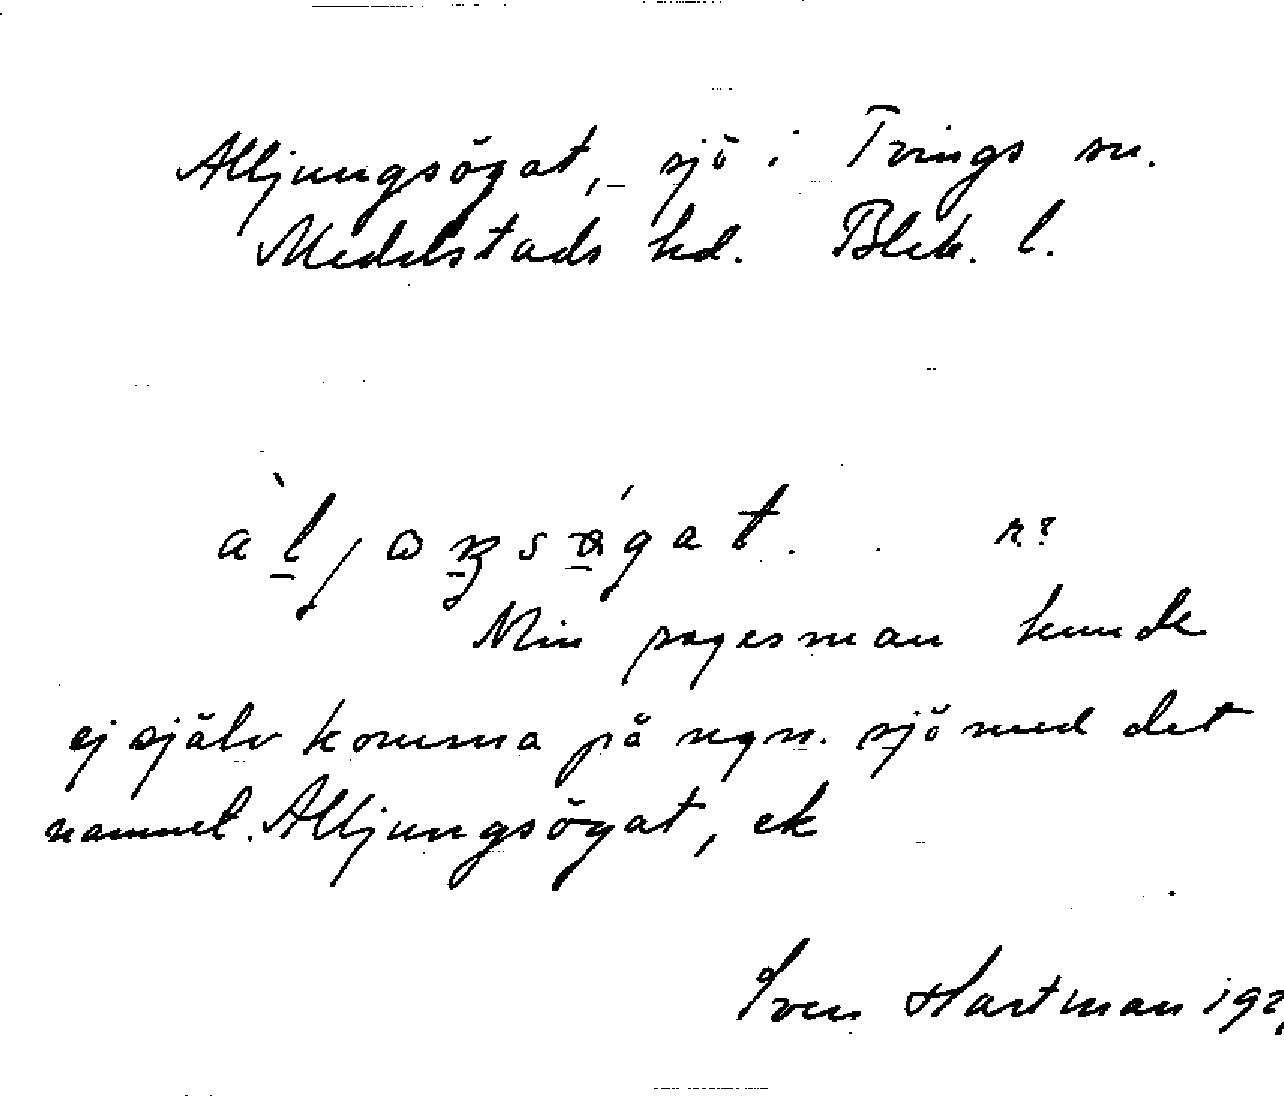 Alljungsögat, sjö i Tvings sn.
Medelstads hd. Blek. l.
n?
Min sagesman kunde
ej själv komma på ngn. sjö med det
namnet. Alljungsögat, ek
Sven Hartman 192